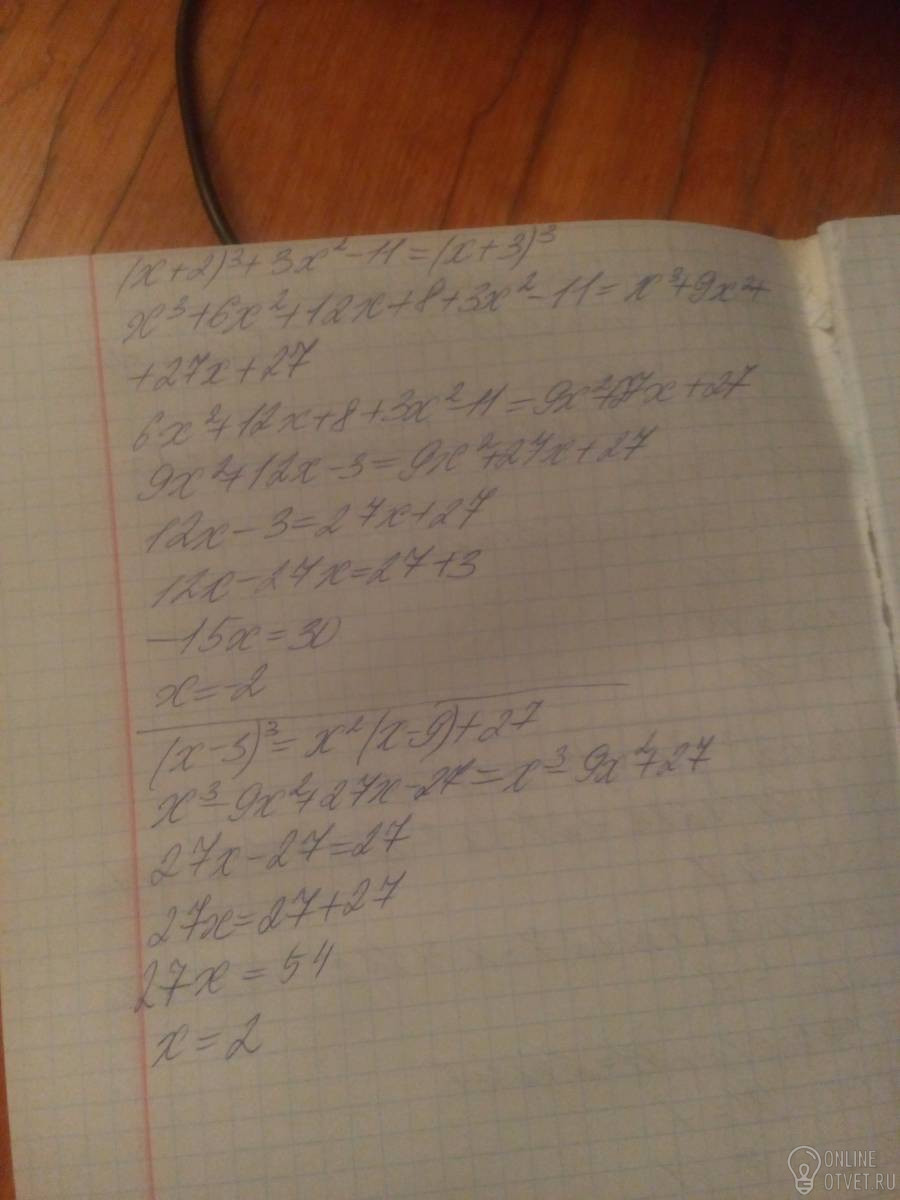 (x+2)³+3x²-11=(x+3)³
x³+6x²+12x+8+3x²-11=x³+9x²+
+27x+27
6x²+12x+8+3x²-11=9x²+27x+27
9x²+12x-3=9x²+27x+27
12x-3=27x+27
12x-27x=27+3
-15x=30
x=-2
(x-3)³=x²(x-9)+27
x³-9x²+27x-27=x³-9x²+27
27x-27=27
27x=27+27
27x=54
x=2
ONLINE
OTVET.RU